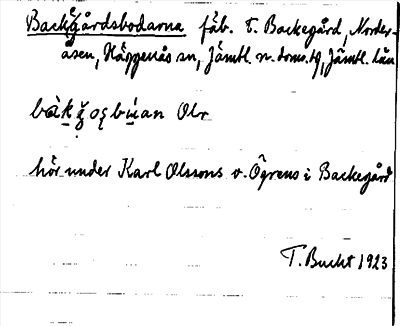 Backgårdsbodarna fäb. t. Backegård, Norder-
åsen, Häggenås sn, Jämtl. n. doms. tg, Jämtl. län
Olr
hör under Karl Olssons o. Ögrens i Backegård
T. Bucht 1923